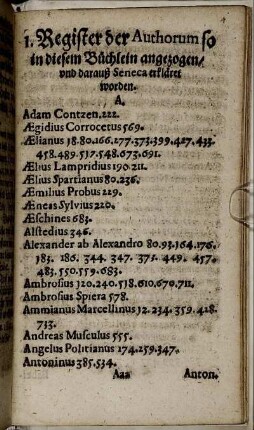 1. Register der Authorum so
in diesem Büchlein angezogen/
vnd darauß Seneca erkläret
worden.
A.
Adam Contzen. 222.
Ægidius Corrocetus 569.
Ælianus 18. 80. 166. 277. 373. 399. 427. 433.
458. 489. 517. 548. 673. 691.
Ælius Lampridius 190. 211.
Ælius Spartianus 80. 236.
Æmilius Probus 229.
Æneas Sylvius 220.
Æschines 683.
Alstedius 346.
Alexander ab Alexandro 80. 93. 164. 176.
183. 186. 344. 347. 375. 449. 457.
483. 550. 559. 683.
Ambrosius 120. 240. 518. 610. 670. 711.
Ambrosius Spiera 578.
Ammianus Marcellinus 12. 234. 359. 418.
733.
Andreas Musculus 555.
Angelus Politianus 174. 259. 347.
Antoninus 385. 534.
Aaa Anton.